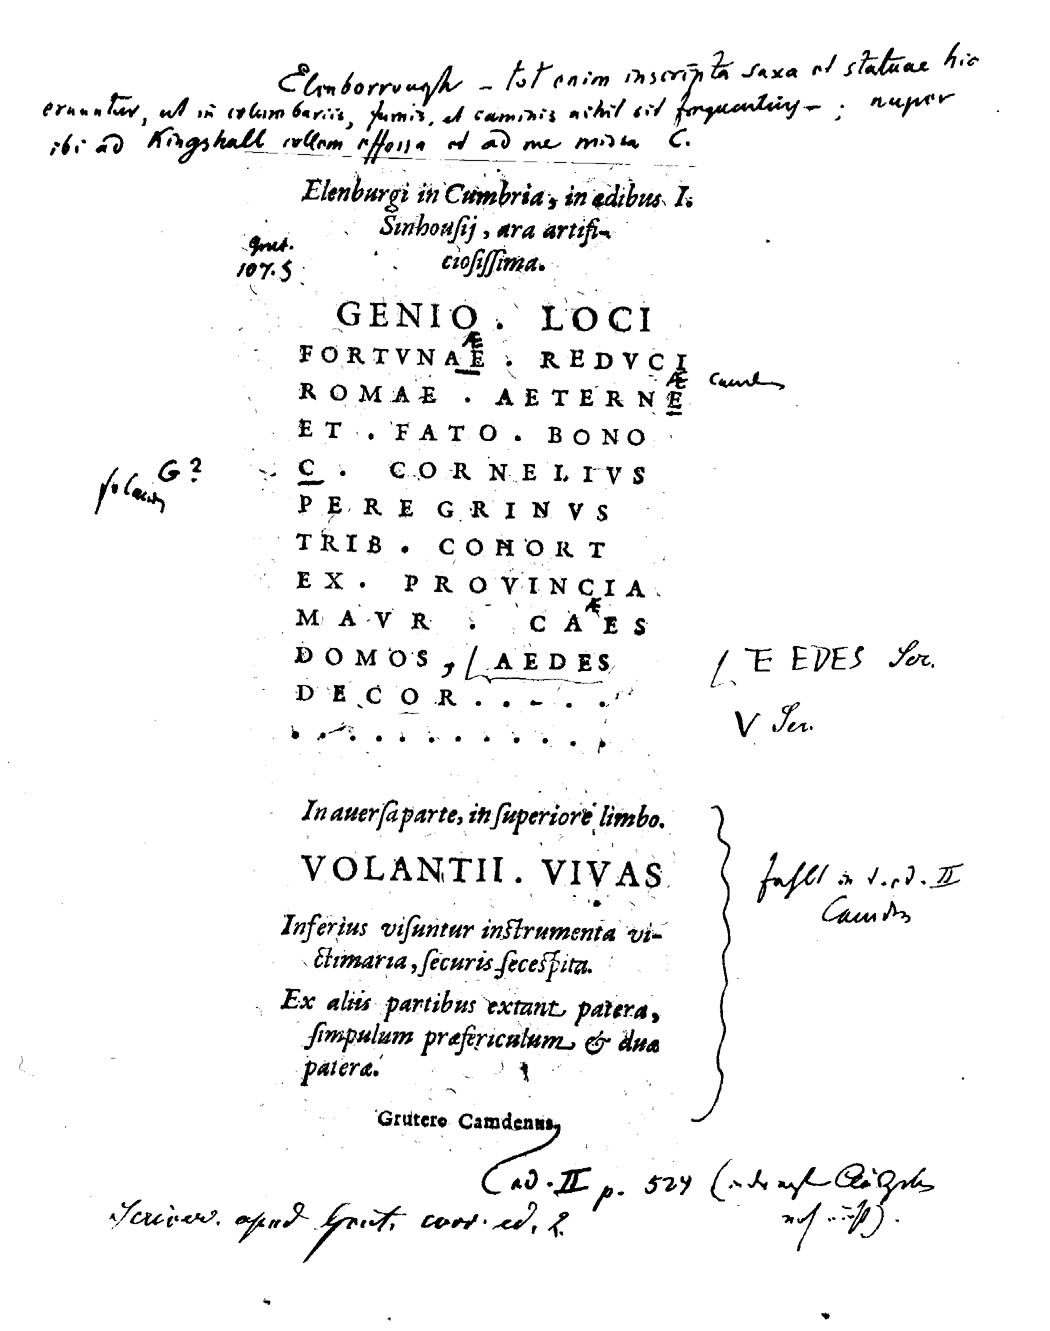 Elenborrough – tot enim inscripta saxa et statuae hic
eruuntur, ut in columbariis, fumis, et caminis nihil sit frequentius – ; nuper
ibi ad Kingshall collem effossa et ad me missa C.
Elenburgi in Cumbria, in ædibus I.
Sinhouſij, ara artifi-
cioſiſſima.
Grut.
107. 5
GENIO . LOCI
Æ
FORTVNAE . REDVCI
Æ
ROMAE . AETERNE
Camd
ET . FATO . BONO
G?
C . CORNELIVS
PEREGRINVS
TRIB . COHORT
EX . PROVINCIA
Æ
MAVR . CAES
DOMOS, AEDES
E EDES Scr.
DECOR . . . . .
V Scr.
. . . . . . . . . .
In auerſa parte, in ſuperiore limbo.
VOLANTII . VIVAS
fehlt in d. ed. II
Camdn
Inferius viſuntur inſtrumenta vi-
ctimaria, ſecuris ſeceſpita.
Ex aliis partibus extant patera,
ſimpulum præfericulum & duæ
pateræ.
Grutero Camdenus,
ed. II p. 524
Scriver. apud Grut. corr. ed. 2.